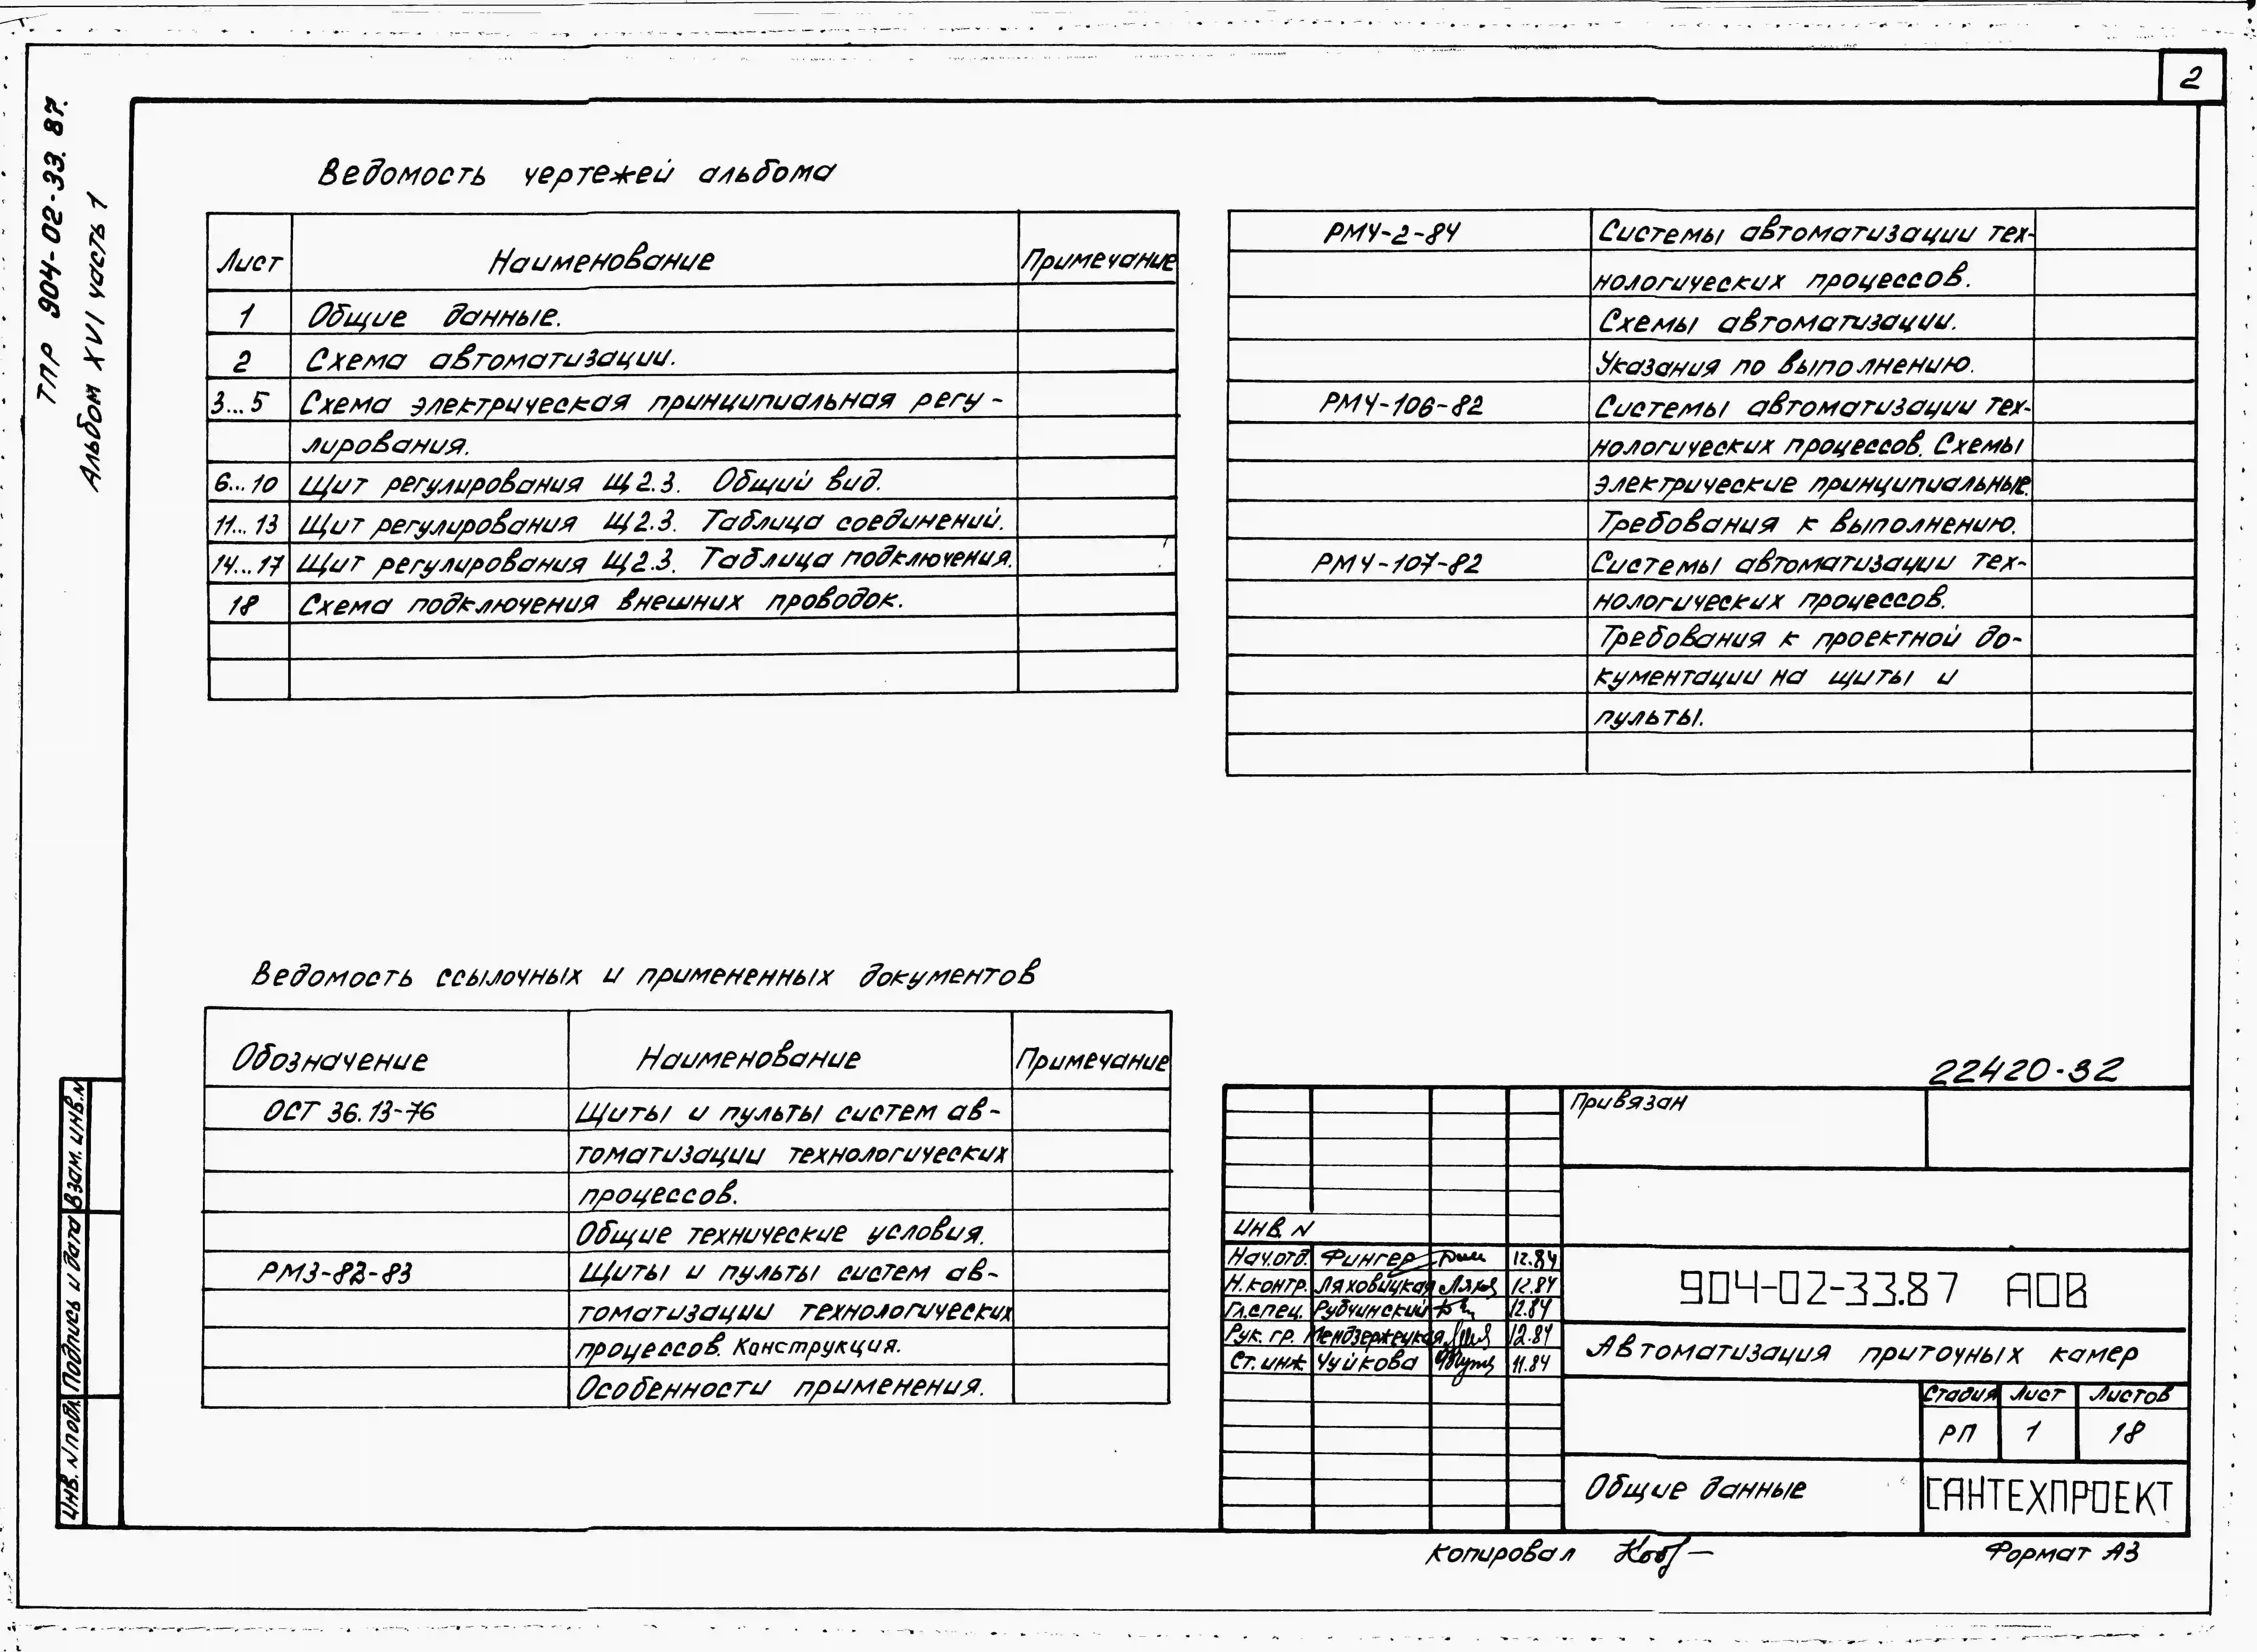 2
ТПР 904-02-33.87.
Альбом XVI часть 1
Ведомость чертежей альбома
Лист Наименование Примечание
1 Общие данные.
2 Схема автоматизации.
3...5 Схема электрическая принципиальная регу-
лирования.
6...10 Щит регулирования Щ2.3. Общий вид.
11...13 Щит регулирования Щ2.3. Таблица соединений.
14...17 Щит регулирования Щ2.3. Таблица подключения.
18 Схема подключения внешних проводок.
РМ4-2-84 Системы автоматизации тех-
нологических процессов.
Схемы автоматизации.
Указания по выполнению.
РМ4-106-82 Системы автоматизации тех-
нологических процессов. Схемы
электрические принципиальные.
Требования к выполнению.
РМ4-107-82 Системы автоматизации тех-
нологических процессов.
Требования к проектной до-
кументации на щиты и
пульты.
Ведомость ссылочных и примененных документов
Обозначение Наименование Примечание
ОСТ 36.13-76 Щиты и пульты систем ав-
томатизации технологических
процессов.
Общие технические условия.
РМ3-82-83 Щиты и пульты систем ав-
томатизации технологических
процессов. Конструкция.
Особенности применения.
22420-32
Привязан
ИНВ. N
Нач.отд. Фингер 12.84
Н.контр. Ляховицкая 12.84
Гл.спец. Рубчинский 12.84
Рук. гр. Мендзержецкая 12.84
Ст. инж. Чуйкова 11.84
904-02-33.87 АОВ
Автоматизация приточных камер
Стадия Лист Листов
РП 1 18
Общие данные
САНТЕХПРОЕКТ
Копировал
Формат А3
Взам. инв. N
Подпись и дата
Инв. N подл.